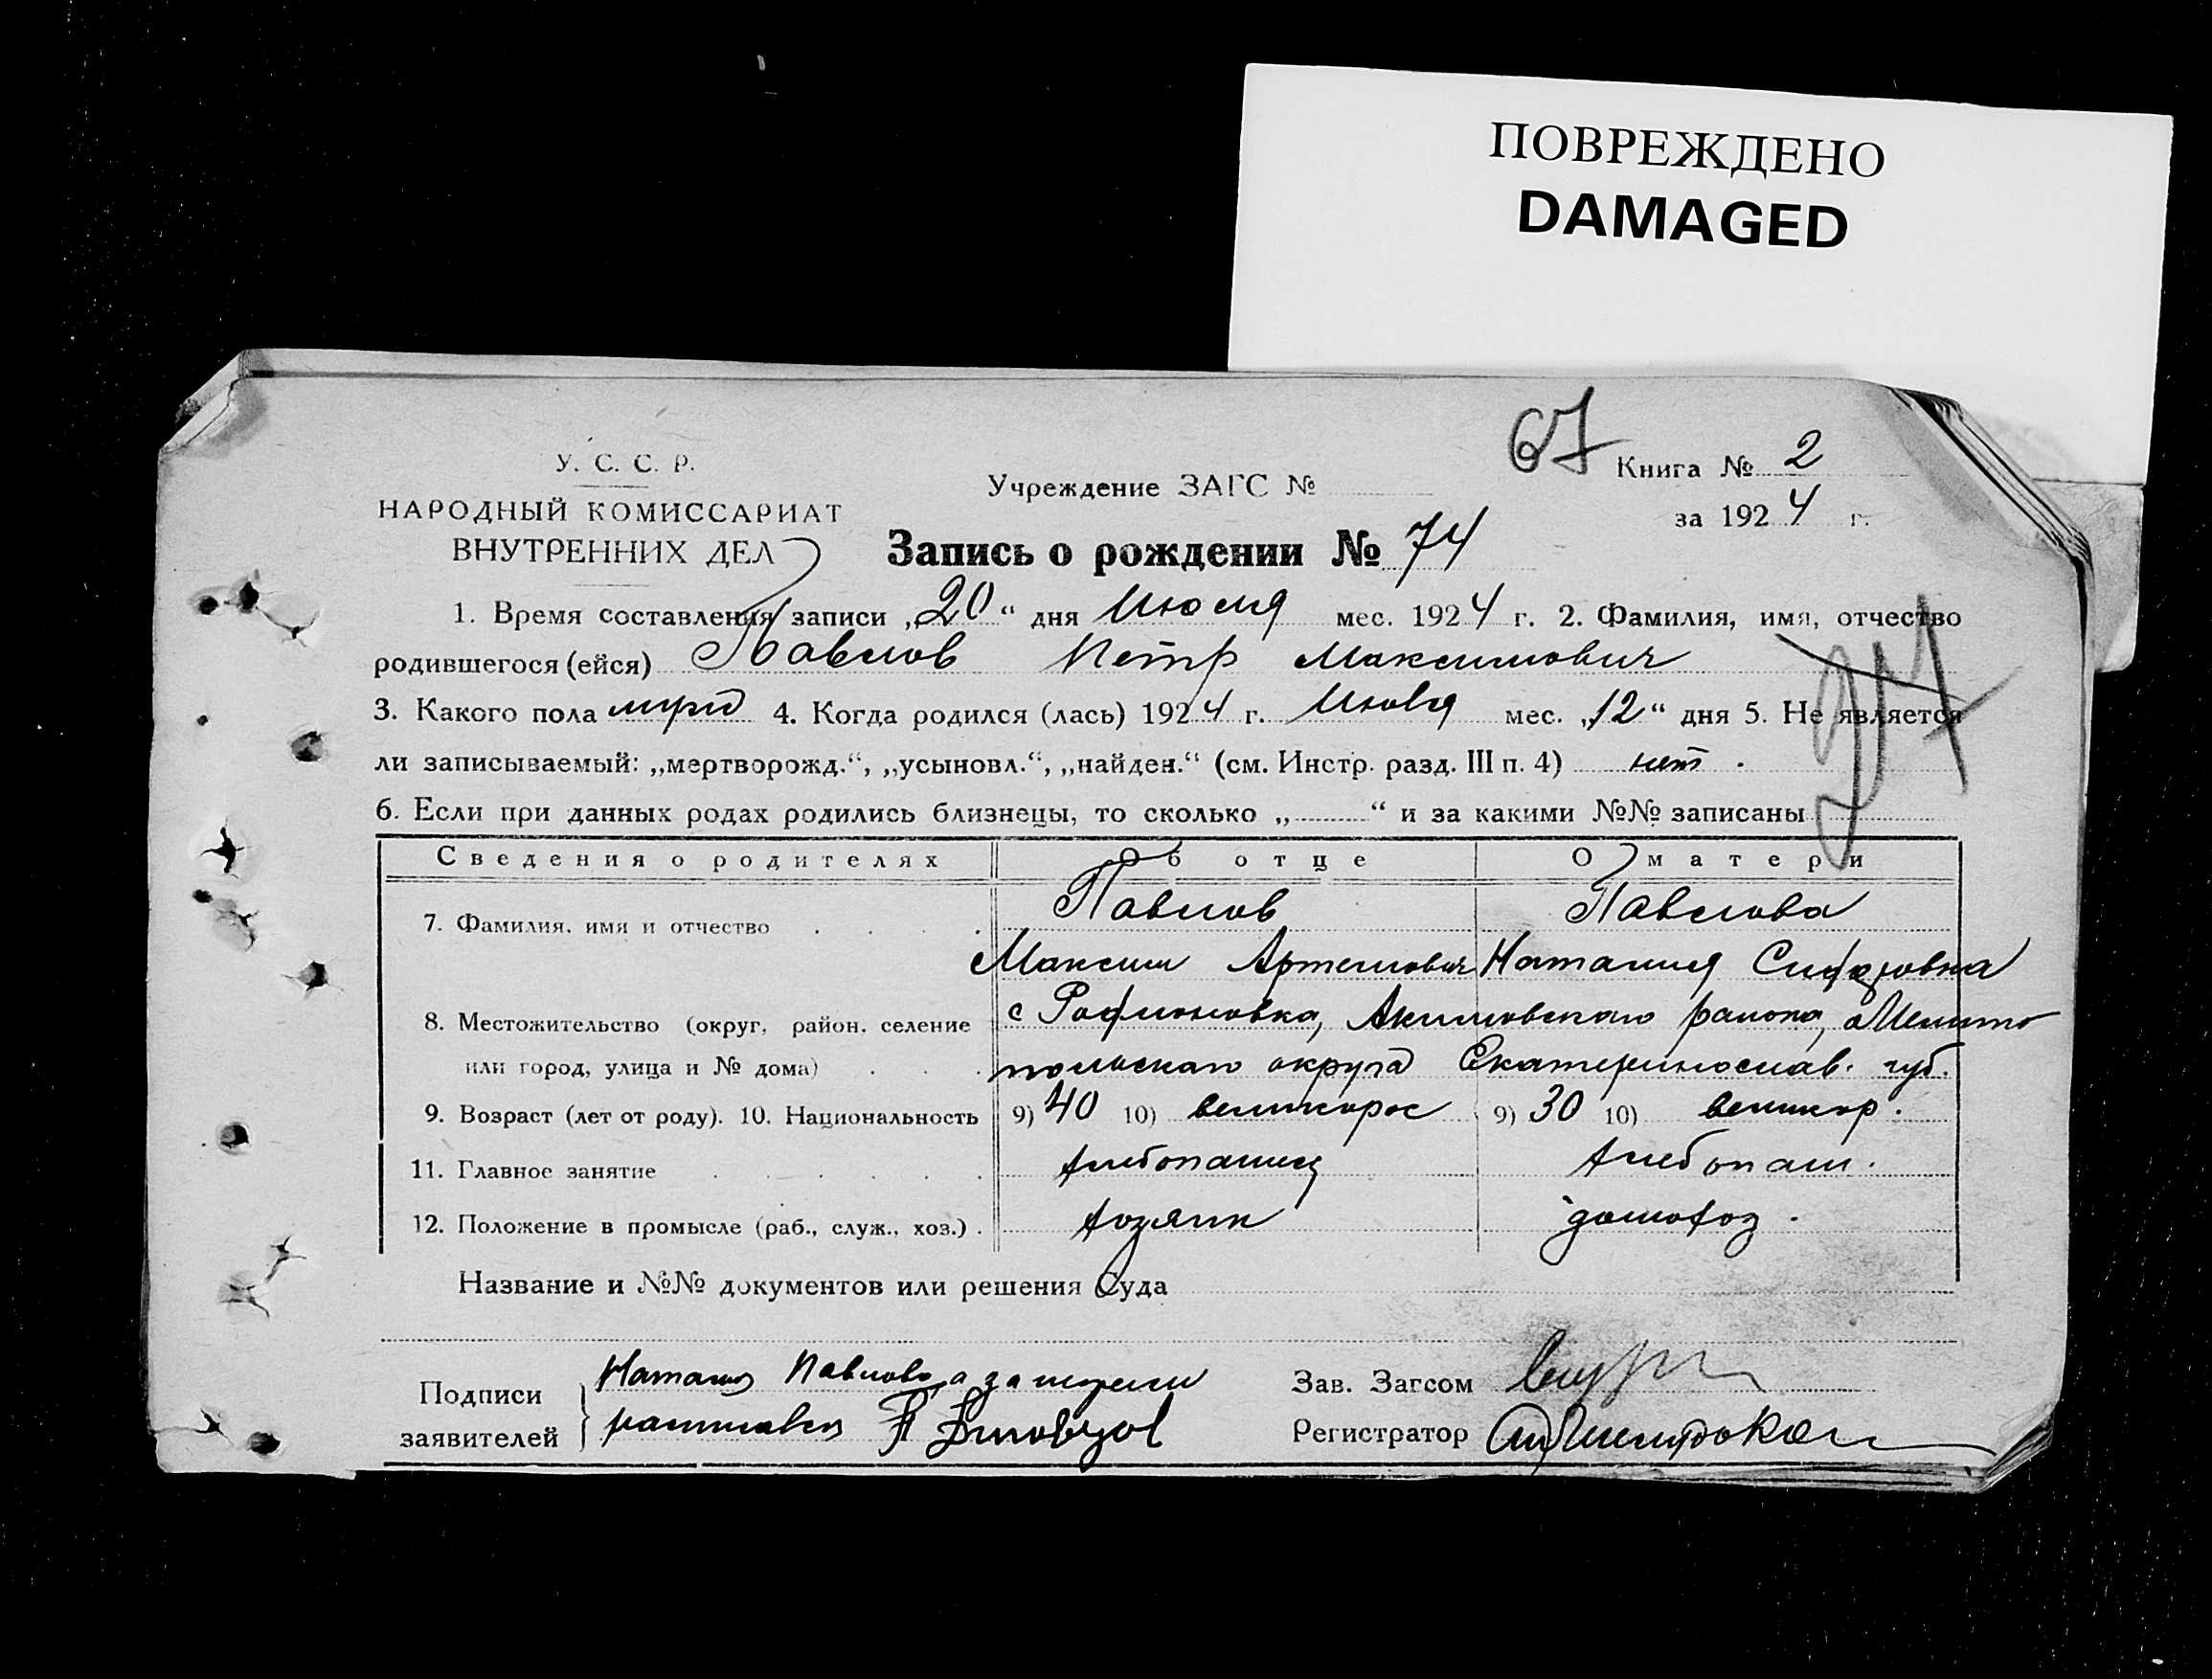 ПОВРЕЖДЕНО
DAMAGED
67
У. С. С. Р.
НАРОДНЫЙ КОМИССАРИАТ
ВНУТРЕННИХ ДЕЛ
Учреждение ЗАГС №
Книга № 2
за 1924 г.
Запись о рождении № 74
1. Время составления записи „20“ дня Июля мес. 1924 г. 2. Фамилия, имя, отчество
родившегося (ейся) Павлов Петр Максимович
3. Какого пола муж 4. Когда родился (лась) 1924 г. Июля мес. „12“ дня 5. Не является
ли записываемый: „мертворожд.“, „усыновл.“, „найден.“ (см. Инстр. разд. III п. 4) нет .
6. Если при данных родах родились близнецы, то сколько „ “ и за какими №№ записаны
Сведения о родителях Об отце О матери
7. Фамилия, имя и отчество Павлов Павлова
Максим Артемович Наталия
8. Местожительство (округ, район, селение с Акимовского района, Мелито
или город, улица и № дома) польского округа Екатеринослав. губ.
9. Возраст (лет от роду). 10. Национальность 9) 40 10) великорос 9) 30 10) великор.
11. Главное занятие хлебопашец хлебопаш.
12. Положение в промысле (раб., служ., хоз.) хозяин домохоз.
Название и №№ документов или решения Суда
Подписи
заявителей
Павлова
Зав. Загсом
Регистратор